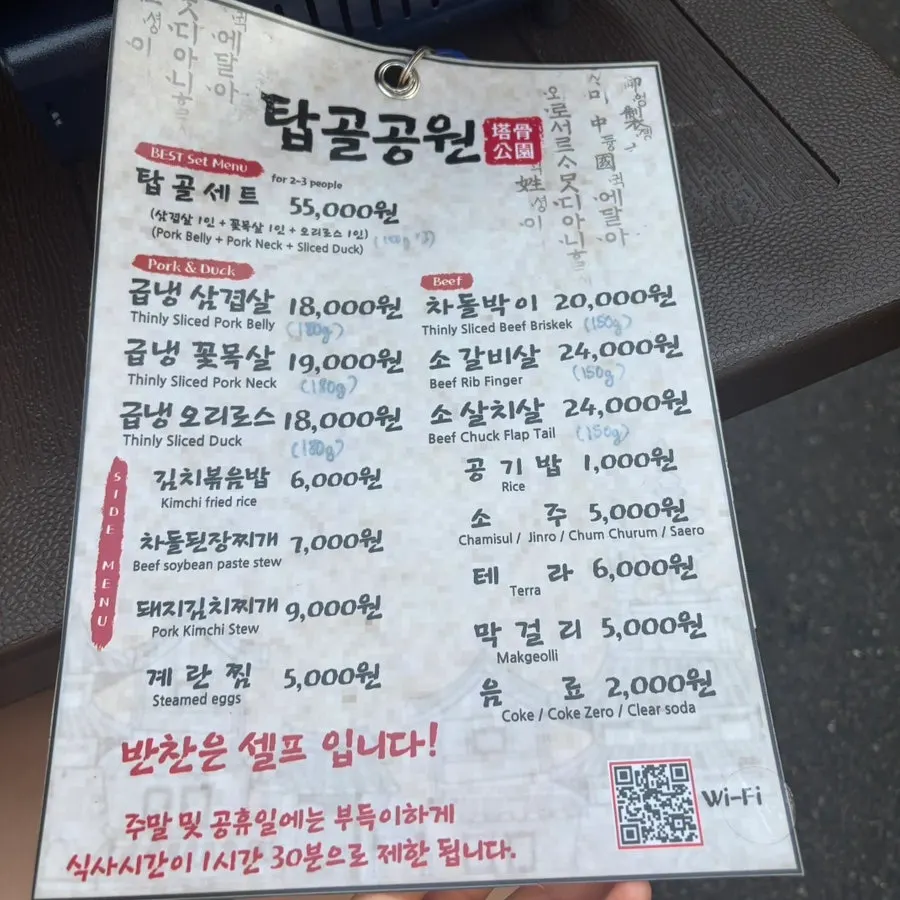 탑골공원
塔骨
公園
BEST Set Menu
for 2-3 people
탑골세트 55,000원
(삼겹살 1인 + 꽃목살 1인 + 오리로스 1인)
(Pork Belly + Pork Neck + Sliced Duck)
Pork & Duck
급냉 삼겹살 18,000원
Thinly Sliced Pork Belly (180g)
급냉 꽃목살 19,000원
Thinly Sliced Pork Neck (180g)
급냉 오리로스 18,000원
Thinly Sliced Duck (180g)
SIDE MENU
김치볶음밥 6,000원
Kimchi fried rice
차돌된장찌개 7,000원
Beef soybean paste stew
돼지김치찌개 9,000원
Pork Kimchi Stew
계란찜 5,000원
Steamed eggs
Beef
차돌박이 20,000원
Thinly Sliced Beef Briskek (150g)
소갈비살 24,000원
Beef Rib Finger (150g)
소살치살 24,000원
Beef Chuck Flap Tail (150g)
공기밥 1,000원
Rice
소주 5,000원
Chamisul / Jinro / Chum Churum / Saero
테라 6,000원
Terra
막걸리 5,000원
Makgeolli
음료 2,000원
Coke / Coke Zero / Clear soda
반찬은 셀프 입니다!
주말 및 공휴일에는 부득이하게
식사시간이 1시간 30분으로 제한 됩니다.
Wi-Fi